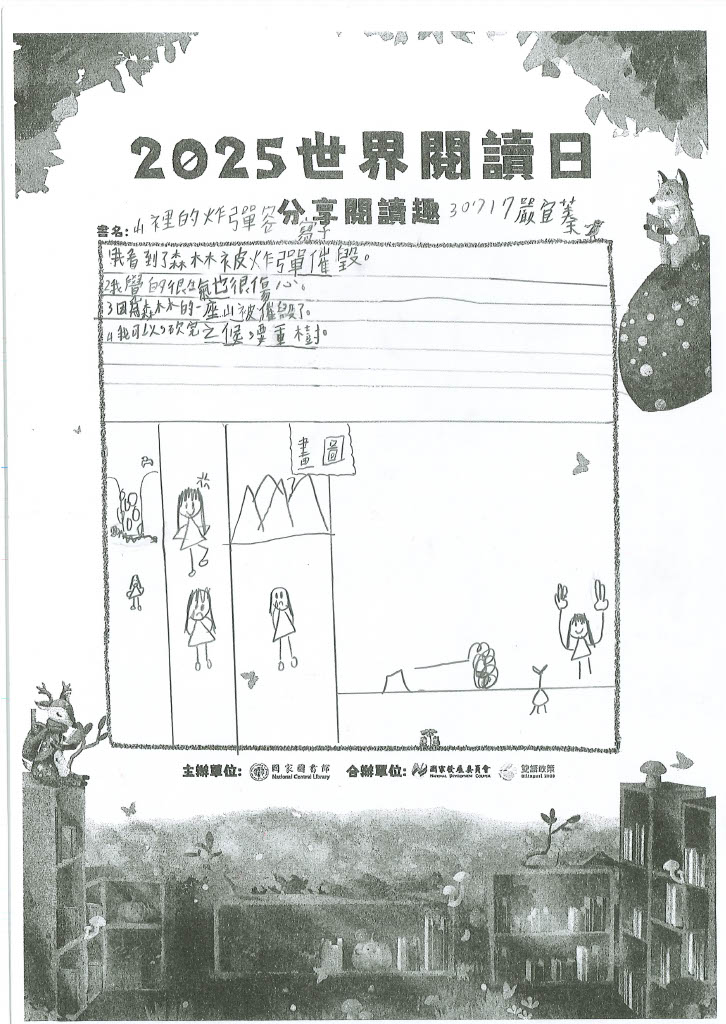 2025世界閱讀日
分享閱讀趣 30717嚴宜蓁
書名:山裡的炸彈客
寫字
1我看到了森林被炸彈催毀。
2我覺的很生氣也很傷心。
3因為森林的一座山被催毀了。
4我可以砍完之候要重樹。
畫圖
主辦單位: 國家圖書館 合辦單位: 國家發展委員會 雙語政策
National Central Library NATIONAL DEVELOPMENT COUNCIL Bilingual 2030